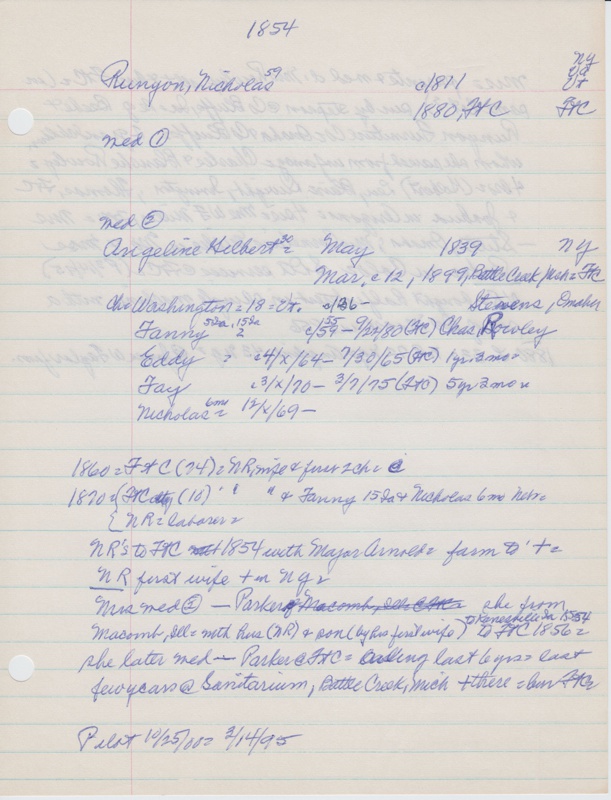 1854
Runyon, Nicholas 59 c/1811 NY
1880, FtC FtC
med ①
med ②
Angeline Helbert = May 1839 NY
Mar. c 12, 1899, Battle Creek, Mich = FtC
Ch = Washington = 18 = Vt. c/36 - Stevens, Omaha
Fanny 5 2a, 15 2a c/55 - 9/20/80 (FtC) Chas. Rowley
Eddy = c4/x/64 - 7/30/65 (FtC) 1 yr 3 mo =
Fay c3/x/70 - 3/7/75 (FtC) 5 yr 2 mo =
Nicholas 6mo = 12/x/69 -
1860 = FtC (74) = NR, wife & first 2 ch =
1870 = (10) " " " & Fanny 15 2a & Nicholas 6 mo Nebr =
NR = laborer =
NR's to FtC 1854 with Major Arnold = farm
NR first wife + in NY =
Mrs med ② — Parker of Macomb, Ill = she from
Macomb, Ill = with hus (NR) & son (by his first wife) to Kanesville Ia 1854 to FtC 1856 =
she later med — Parker @ FtC = ailing last 6 yrs = last
few years @ Sanitarium, Battle Creek, Mich + there = bur FtC =
Pilot 10/25/00 = 3/14/95